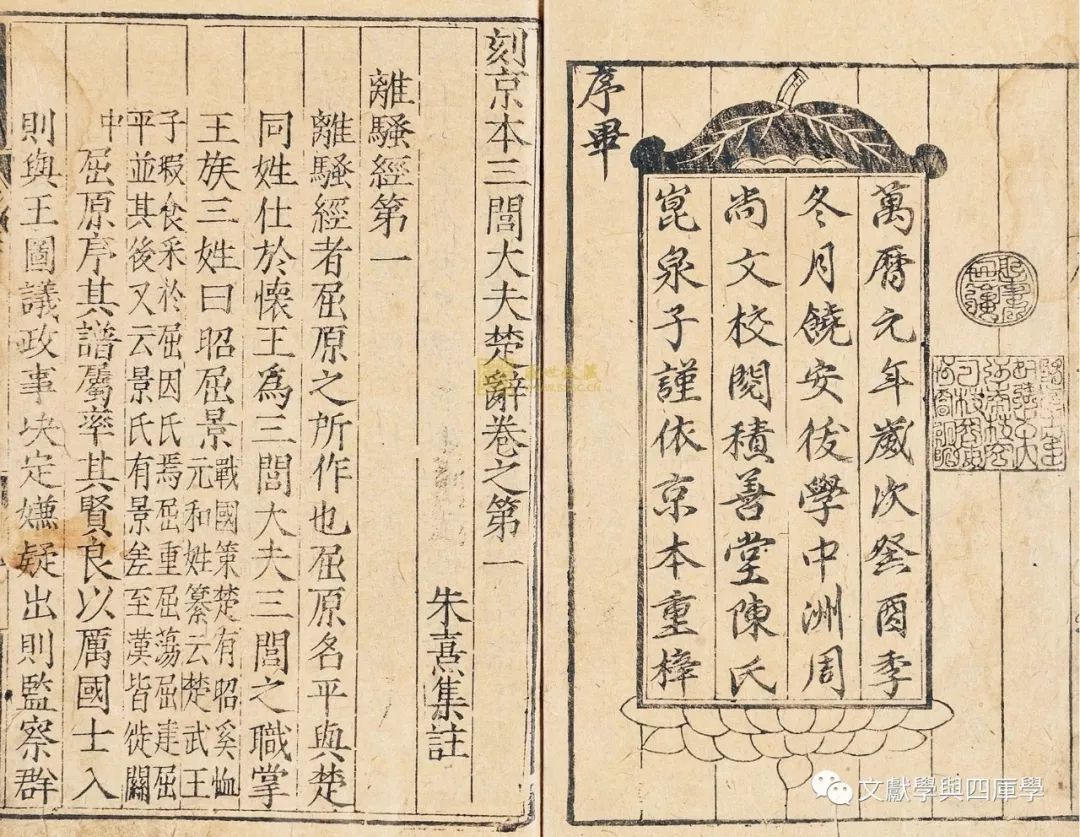 序畢
萬曆元年歲次癸酉季
冬月饒安後學中洲周
尚文校閱積善堂陳氏
崑泉子謹依京本重梓
刻京本三閭大夫楚辭卷之第一
朱熹集註
離騷經第一
離騷經者屈原之所作也屈原名平與楚
同姓仕於懷王爲三閭大夫三閭之職掌
王族三姓曰昭屈景
戰國策楚有昭奚恤
元和姓纂云楚武王
子瑕食采於屈因氏焉屈重屈蕩屈建屈
平並其後又云景氏有景差至漢皆徙關
中
屈原序其譜屬率其賢良以厲國士入
則與王圖議政事决定嫌疑出則監察群
文獻學與四庫學